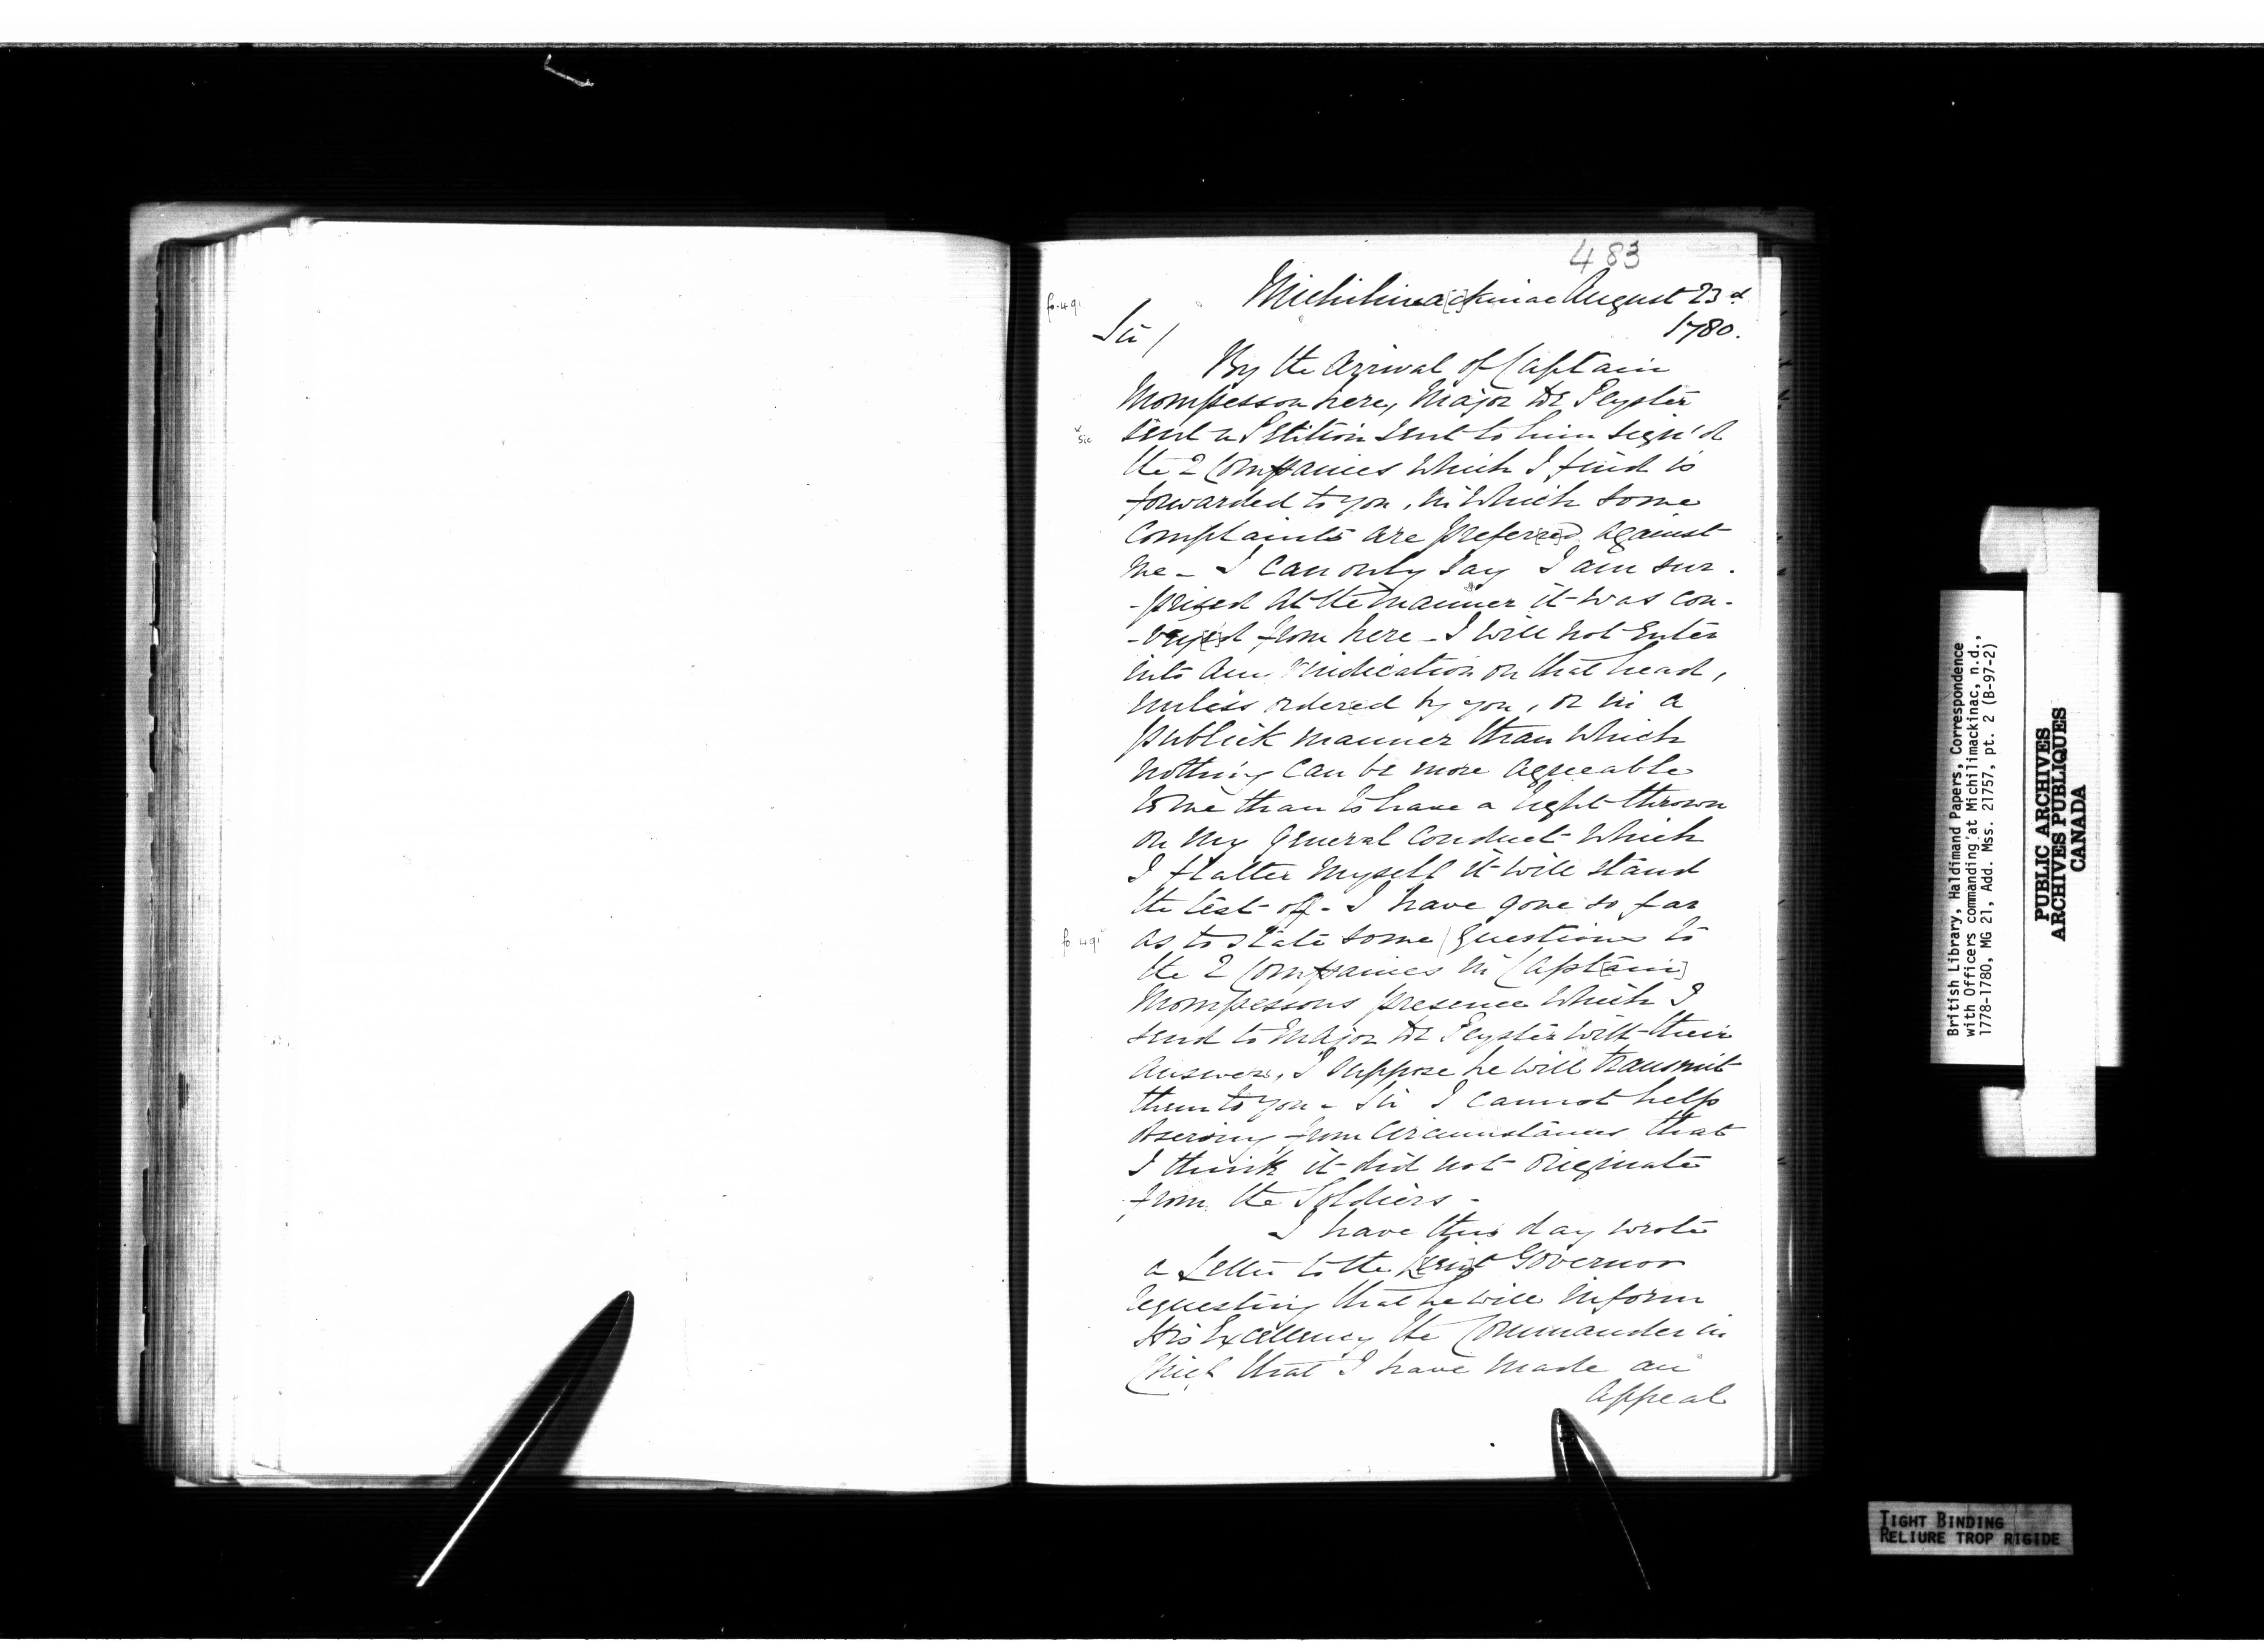 483
fo. 491
Michilima[c]kinac August 23d
1780.
Sir/
By the Arrival of Captain
Mompesson here, Major De Peyster
sic
sent a Petition sent to him sign'd
the 2 Companies which I find is
forwarded to you, in which some
Complaints are prefer[red] against
me - I can only say I am sur-
-prized at the manner it was con-
-vey[e]d from here - I will not Enter
into any Vindication on that head,
unless ordered by you, or in a
publick manner than which
nothing can be more agreeable
to me than to have a light thrown
on my general Conduct which
I flatter myself it will stand
the test of - I have gone so far
fo 491v
as to state some / Questions to
the 2 Companies in Capt[ain]
Mompessons presence which I
send to Major De Peyster with their
Answers, I suppose he will transmit
them to you - Sir I cannot help
Observing from Circumstances that
I think it did not originate
from the Soldiers -
I have this day wrote
a Letter to the Lieut Governor
requesting that he will inform
His Excellency the Commander in
Chief that I have made an
Appeal
British Library, Haldimand Papers, Correspondence
with Officers commanding at Michilimackinac, n.d.,
1778-1780, MG 21, Add. Mss. 21757, pt. 2 (B-97-2)
PUBLIC ARCHIVES
ARCHIVES PUBLIQUES
CANADA
TIGHT BINDING
RELIURE TROP RIGIDE